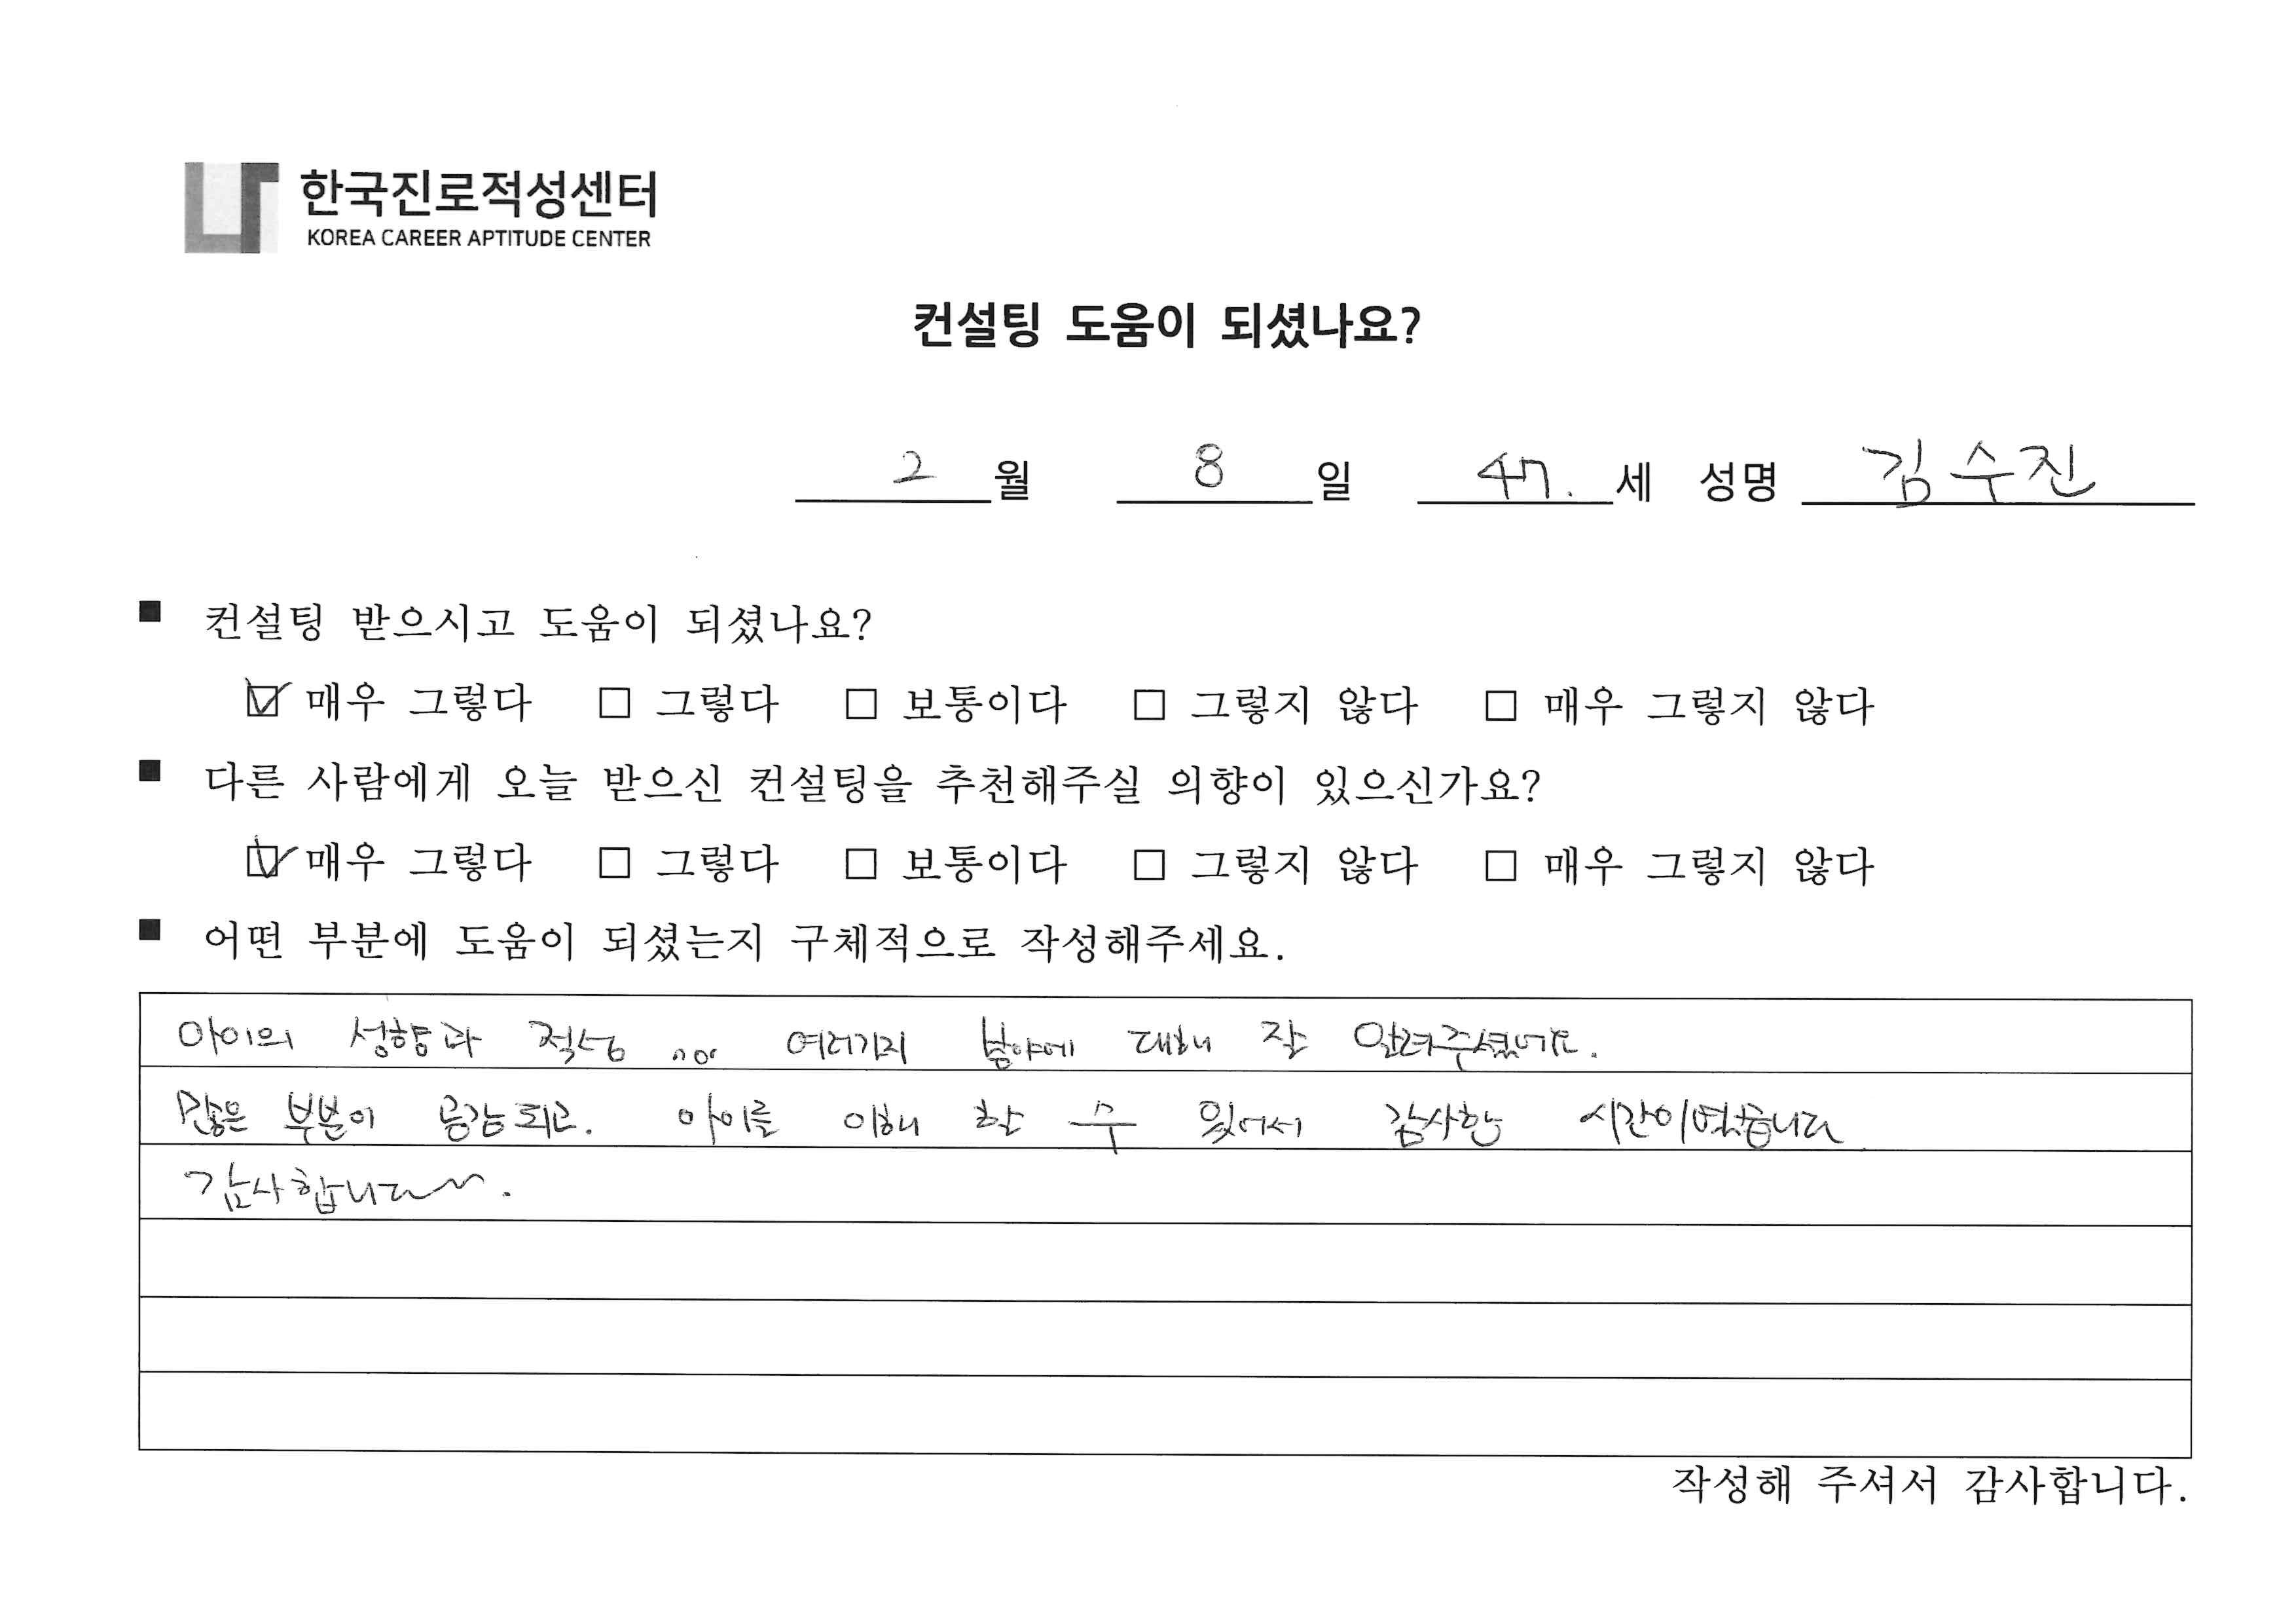 한국진로적성센터
KOREA CAREER APTITUDE CENTER
컨설팅 도움이 되셨나요?
2 월 8 일 47. 세 성명 김수진
■ 컨설팅 받으시고 도움이 되셨나요?
☑ 매우 그렇다 □ 그렇다 □ 보통이다 □ 그렇지 않다 □ 매우 그렇지 않다
■ 다른 사람에게 오늘 받으신 컨설팅을 추천해주실 의향이 있으신가요?
☑ 매우 그렇다 □ 그렇다 □ 보통이다 □ 그렇지 않다 □ 매우 그렇지 않다
■ 어떤 부분에 도움이 되셨는지 구체적으로 작성해주세요.
아이의 성향과 적성 ... 여러가지 분야에 대해 잘 알려주셨네요.
많은 부분이 공감되고. 아이를 이해 할 수 있어서 감사한 시간이였습니다
감사합니다~~.
작성해 주셔서 감사합니다.